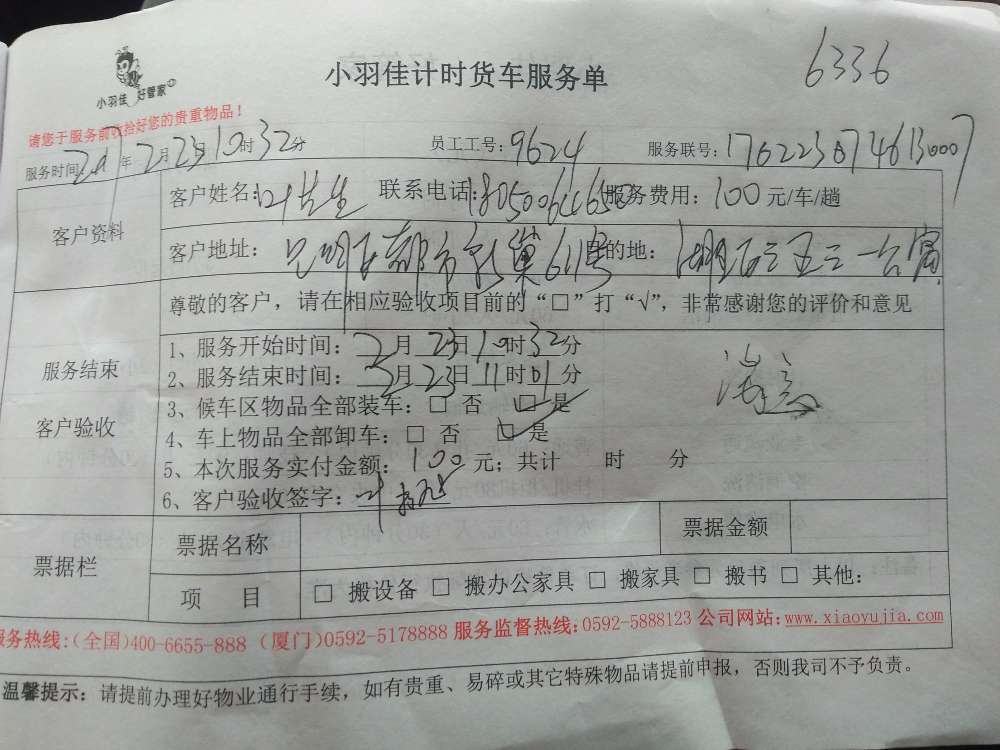 小羽佳计时货车服务单
6336
小羽佳 好管家
请您于服务前收拾好您的贵重物品！
服务时间: 201 年 2 月 23 日 10 时 32 分 员工工号: 9624 服务联号:
客户资料
客户姓名: 叶先生 联系电话: 服务费用: 100 元/车/趟
客户地址: 都市新巢611号 目的地:
尊敬的客户，请在相应验收项目前的“□”打“√”，非常感谢您的评价和意见
服务结束
客户验收
1、服务开始时间: 2 月 23 日 10 时 32 分
2、服务结束时间: 2 月 23 日 11 时 01 分
满意
3、候车区物品全部装车: □ 否 □ 是
4、车上物品全部卸车: □ 否 □ 是
5、本次服务实付金额: 100 元；共计 时 分
6、客户验收签字: 叶
票据栏
票据名称 票据金额
项 目 □ 搬设备 □ 搬办公家具 □ 搬家具 □ 搬书 □ 其他:
服务热线:(全国)400-6655-888 (厦门)0592-5178888 服务监督热线:0592-5888123 公司网站:www.xiaoyujia.com
温馨提示: 请提前办理好物业通行手续，如有贵重、易碎或其它特殊物品请提前申报，否则我司不予负责。